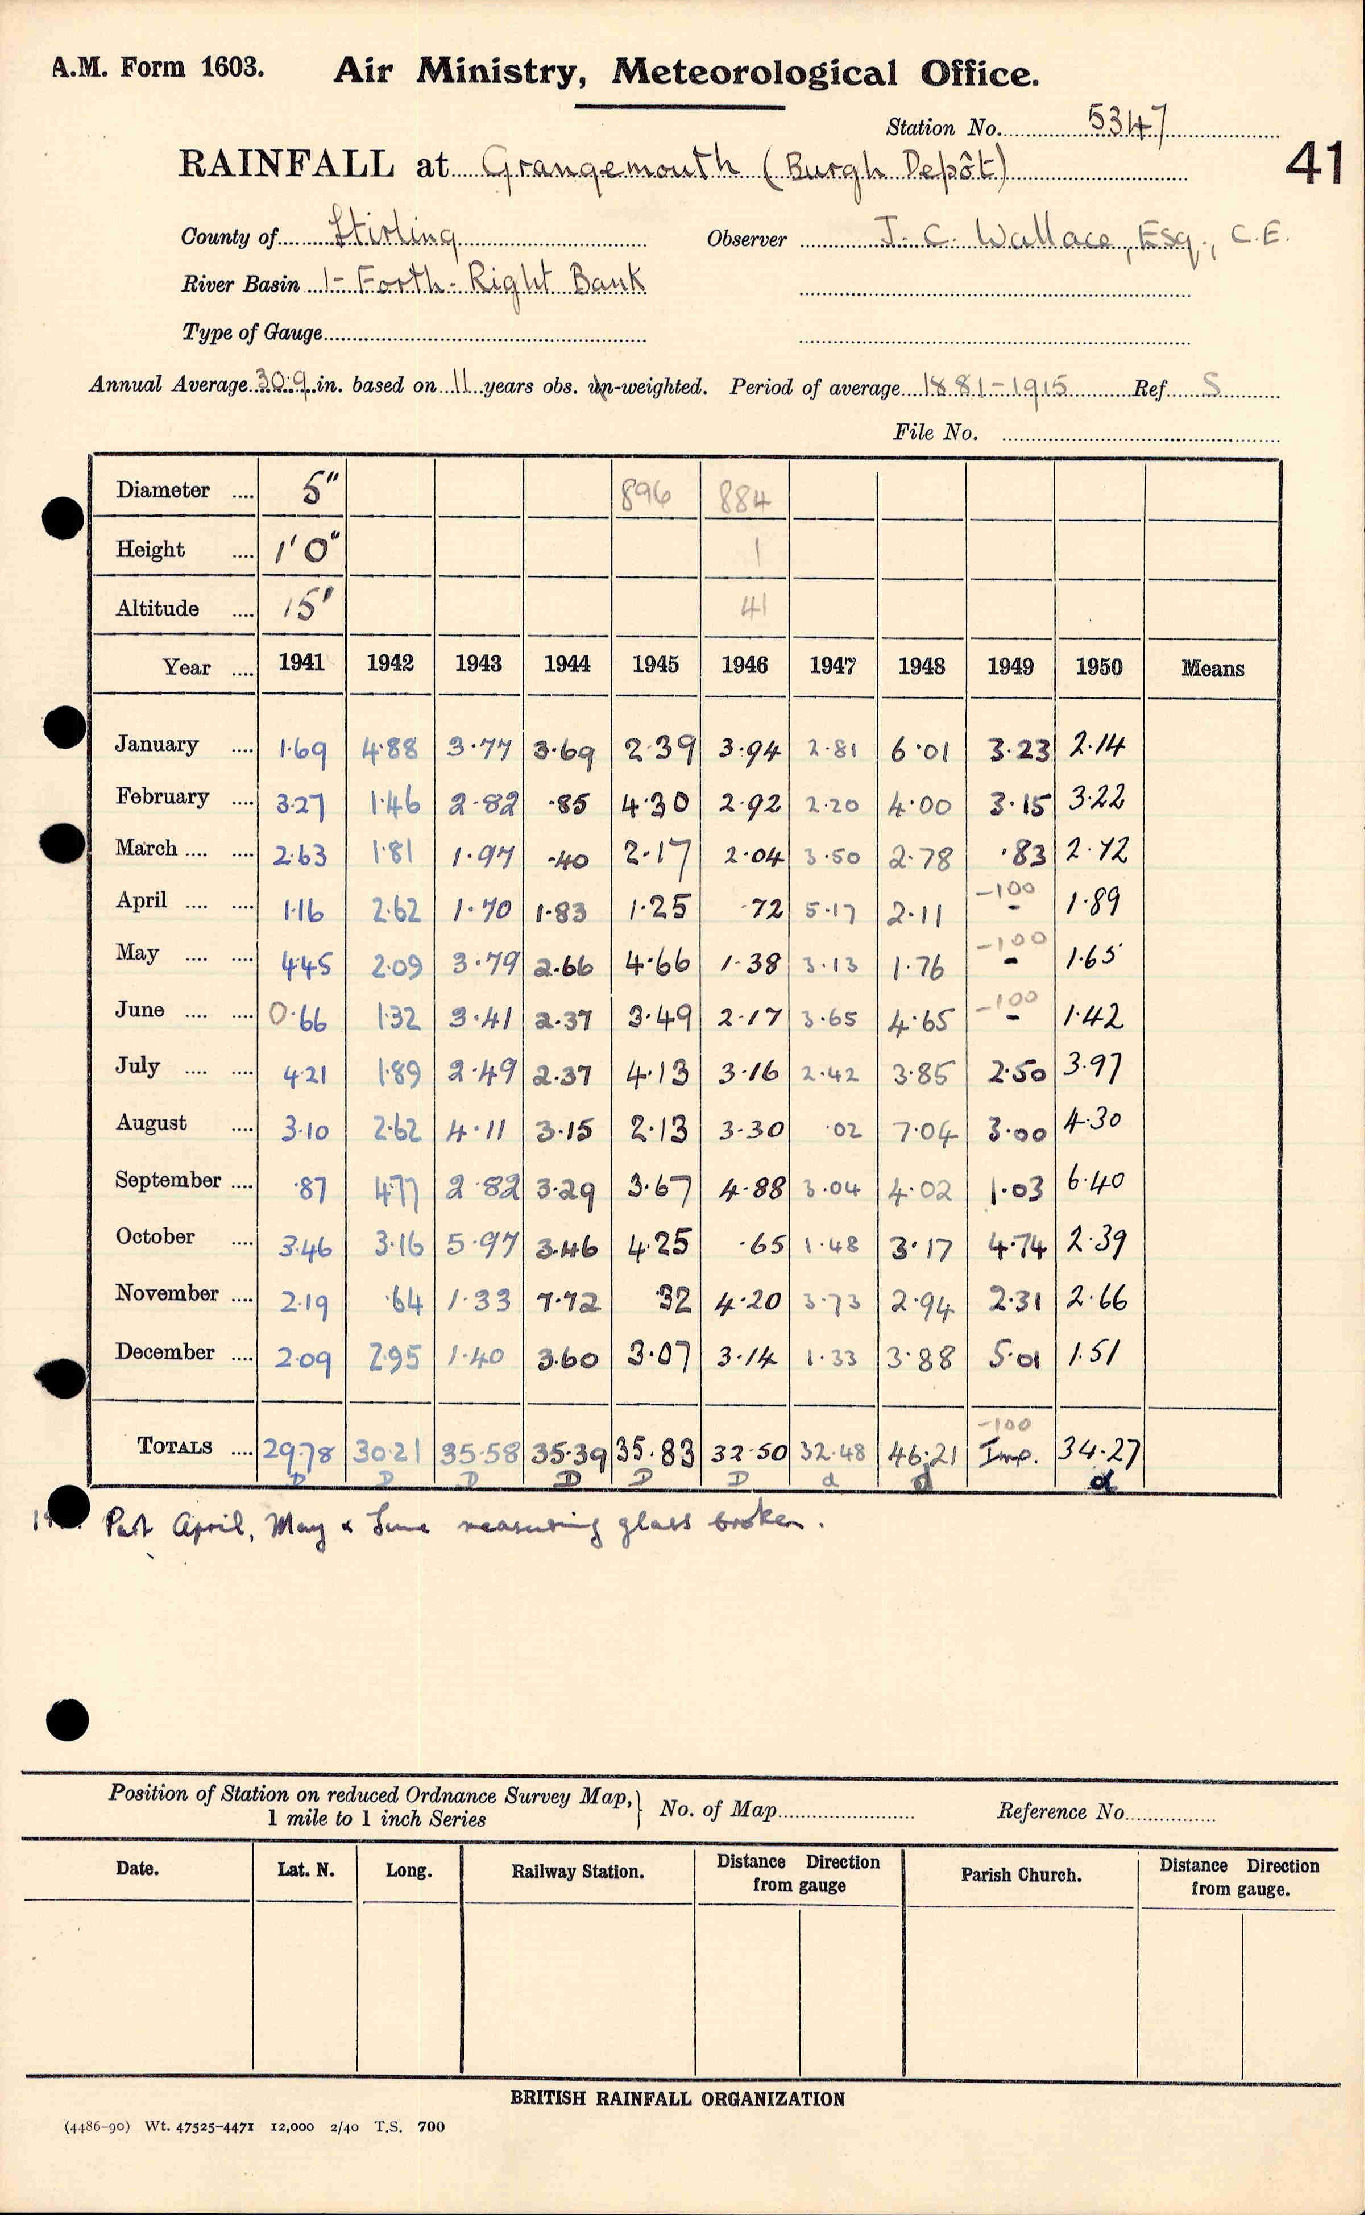 A.M. Form 1603. Air Ministry, Meteorological Office.
Station No. 5347
41
RAINFALL at Grangemouth (Burgh Depôt)
County of Stirling Observer J. C. Wallace, Esq., C.E.
River Basin 1- Forth- Right Bank
Type of Gauge
Annual Average 30.9 in. based on 11 years obs. un-weighted. Period of average 1881-1915 Ref. S
File No.
Diameter .... 5" 896 884
Height .... 1'0" 1
Altitude .... 15' 41
Year .... 1941 1942 1943 1944 1945 1946 1947 1948 1949 1950 Means
January .... 1.69 4.88 3.77 3.69 2.39 3.94 2.81 6.01 3.23 2.14
February .... 3.27 1.46 2.82 .85 4.30 2.92 2.20 4.00 3.15 3.22
March .... .... 2.63 1.81 1.97 .40 2.17 2.04 3.50 2.78 .83 2.72
April .... .... 1.16 2.62 1.70 1.83 1.25 .72 5.17 2.11 -100 - 1.89
May .... .... 4.45 2.09 3.79 2.66 4.66 1.38 3.13 1.76 -100 - 1.65
June .... .... 0.66 1.32 3.41 2.37 3.49 2.17 3.65 4.65 -100 - 1.42
July .... .... 4.21 1.89 2.49 2.37 4.13 3.16 2.42 3.85 2.50 3.97
August .... 3.10 2.62 4.11 3.15 2.13 3.30 .02 7.04 3.00 4.30
September .... .87 4.77 2.82 3.29 3.67 4.88 3.04 4.02 1.03 6.40
October .... 3.46 3.16 5.97 3.46 4.25 .65 1.48 3.17 4.74 2.39
November .... 2.19 .64 1.33 7.72 .32 4.20 3.73 2.94 2.31 2.66
December .... 2.09 2.95 1.40 3.60 3.07 3.14 1.33 3.88 5.01 1.51
-100
TOTALS .... 29.78 30.21 35.58 35.39 35.83 32.50 32.48 46.21 Imp. 34.27
D D D D D D d d d
Part April, May & June measuring glass broken.
Position of Station on reduced Ordnance Survey Map,} No. of Map Reference No.
1 mile to 1 inch Series
Date. Lat. N. Long. Railway Station. Distance Direction from gauge Parish Church. Distance Direction from gauge.
BRITISH RAINFALL ORGANIZATION
(4486-90) Wt. 47525-4471 12,000 2/40 T.S. 700